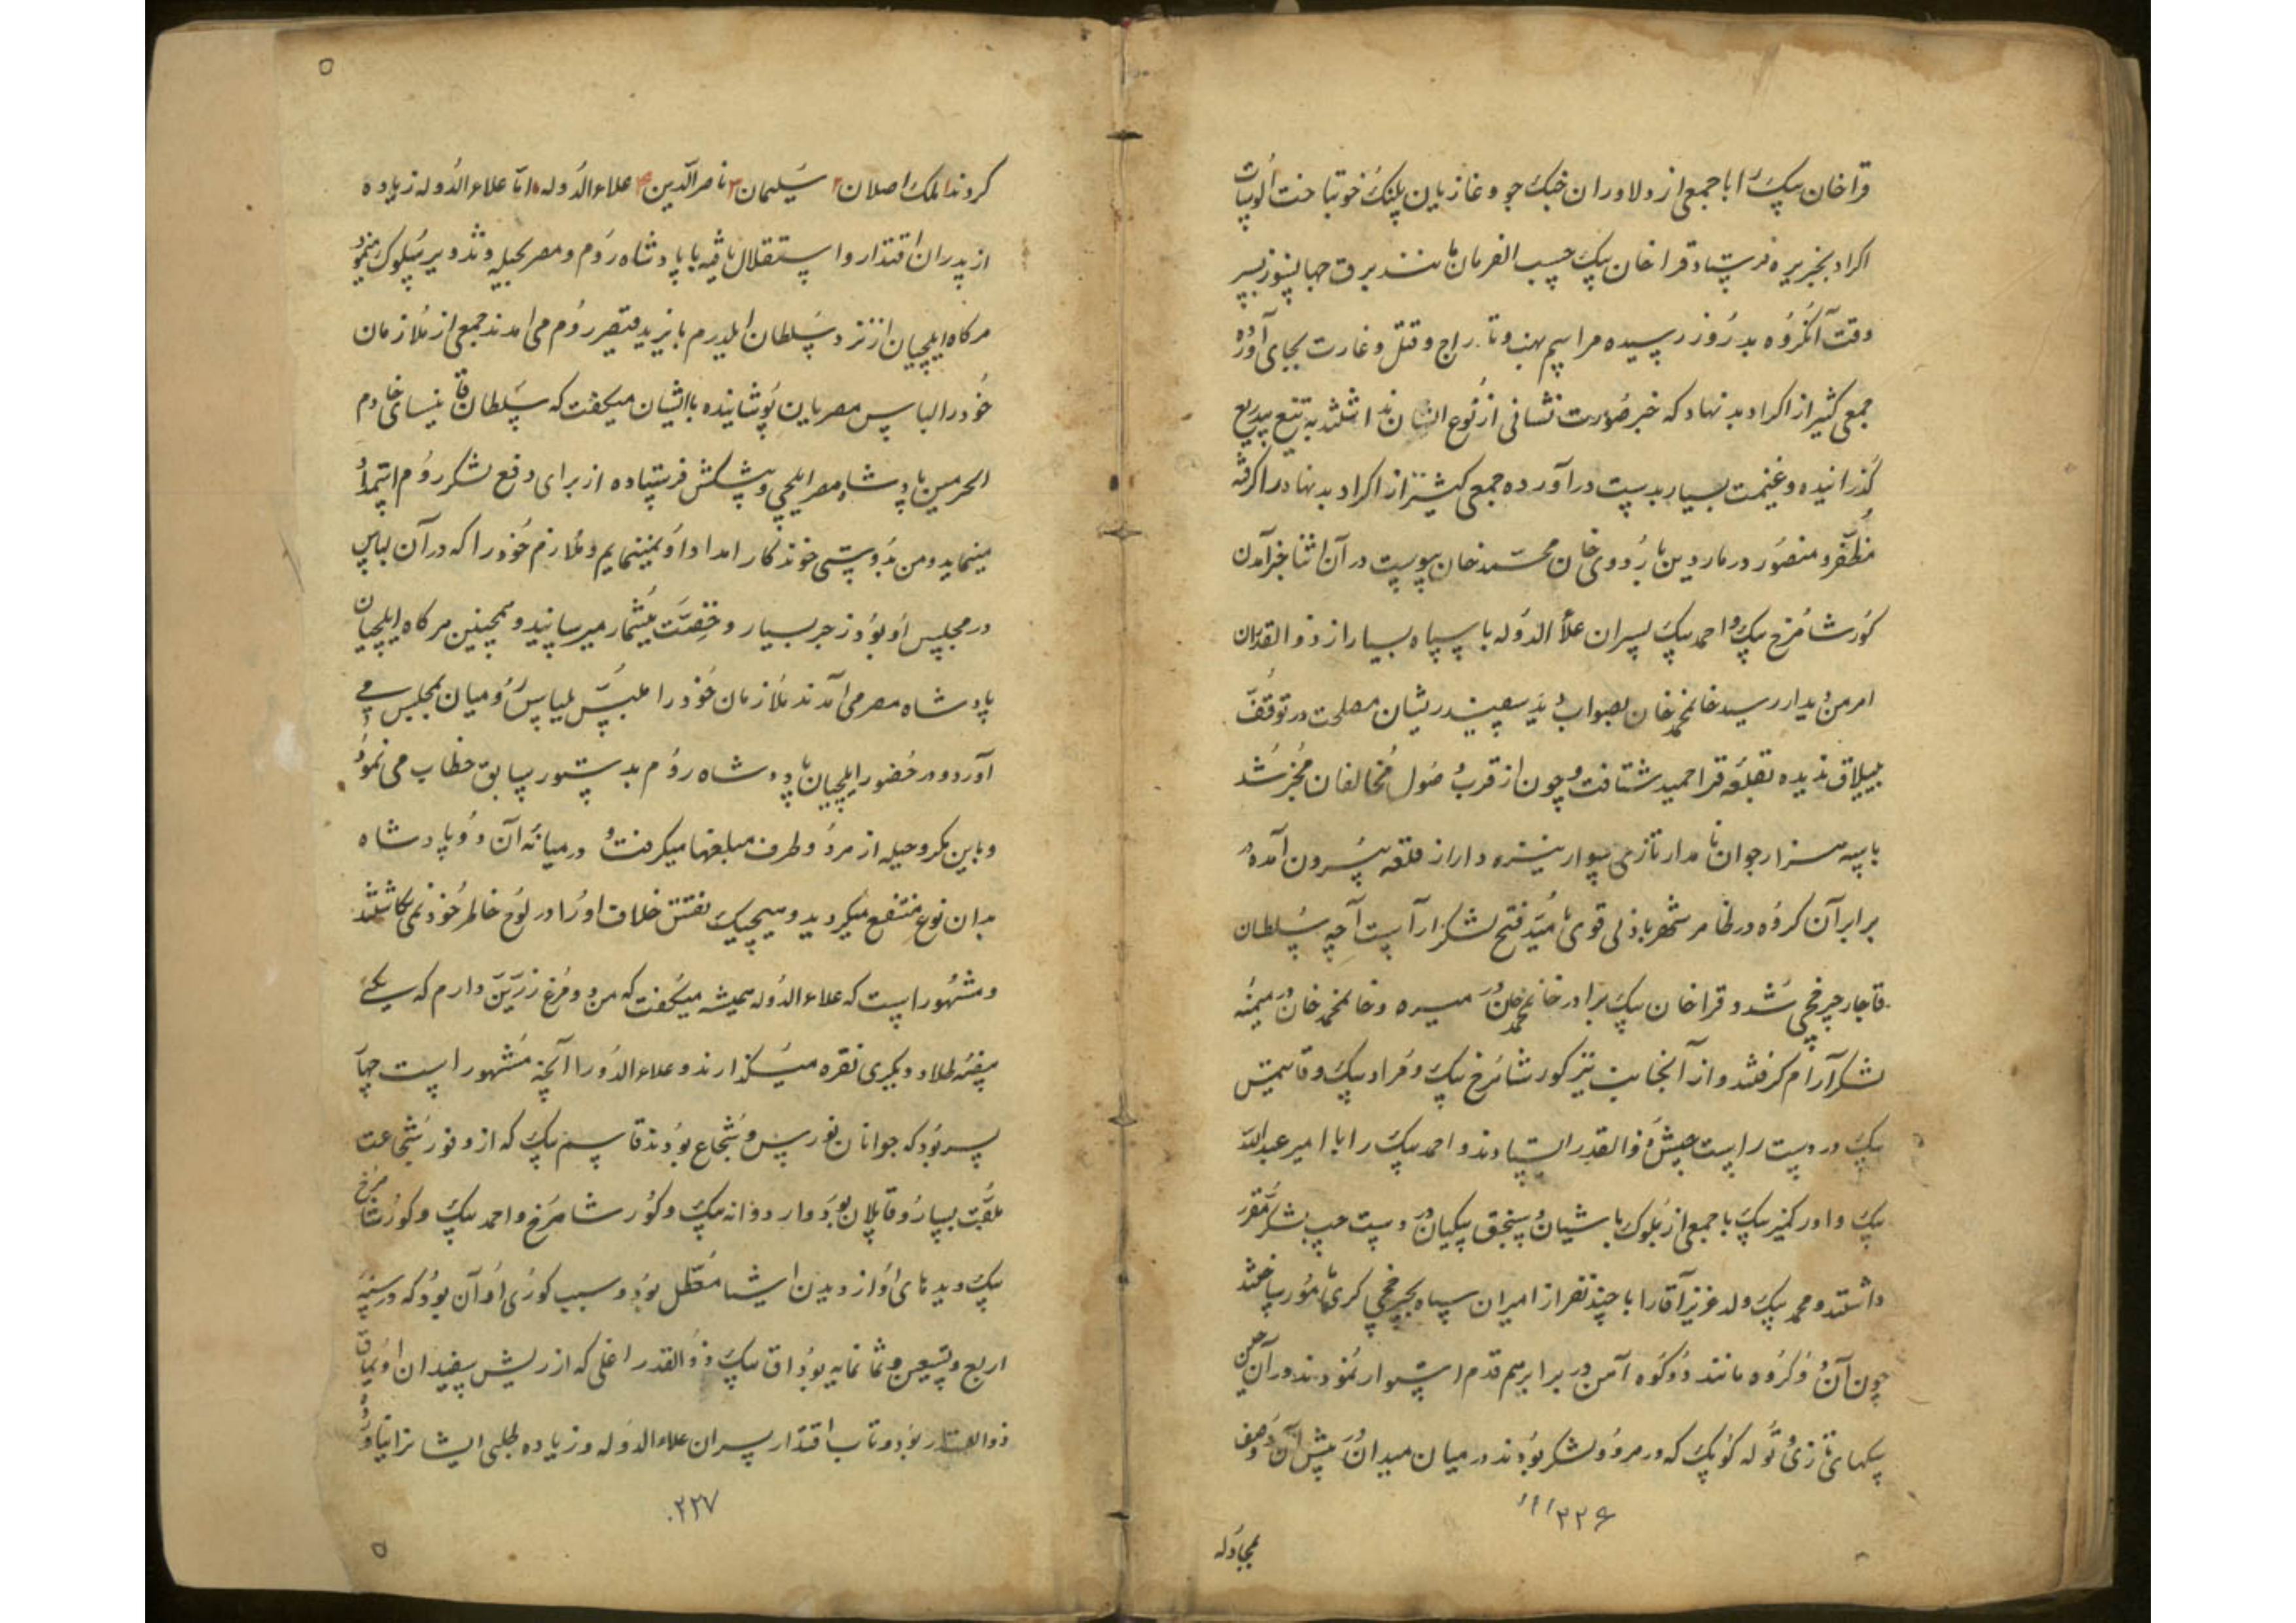 قراخان بیک را با جمعی از دلاوران جنک جو و غازیان پلنک خو بتاخت الوسات
اکراد بجزیره فرستاد قراخان بیک حسب الفرمان مانند برق جهانسوز بسر
وقت آنکروه بدروز رسیده مراسم نهب و تاراج و قتل و غارت بجای آورده
جمعی کثیر از اکراد بدنهاد که خبر صورت نشانی از نوع انسان نداشتند به تیغ بیدریغ
کذرانیده و غنیمت بسیار بدست درآورده جمعی کثیر از اکراد بدنهاد را کرفته
مظفر و منصور در ماردین باردوی خان محمد خان پیوست در آن اثنا خبر آمدن
کور شاهرخ بیک و احمد بیک پسران علاء الدوله با سپاه بسیار از ذوالقدران
رسید خانمحمد خان بصواب دید سفید ریشان مصلحت در توقف
ییلاق ندیده بقلعه قراحمید شتافت و چون از قرب وصول مخالفان مخبر شد
با سه هزار جوان نامدار تازی سوار نیزه دار از قلعه بیرون آمده
برابر آن کروه در ظاهر شهر با دلی قوی بامید فتح لشکر آراست آچه سلطان
قاجار چرخچی شد و قراخان بیک برادر خانمحمد خان در میسره و خانمحمد خان در میمنه
لشکر آرام کرفتند و از آنجانب نیز کور شاهرخ بیک و مراد بیک و قاسم
بیک در دست راست جیش ذوالقدر ایستادند و احمد بیک را با امیر عبدالله
بیک و اورکمز بیک با جمعی از بلوک باشیان و سنجق بیکیان در دست چپ لشکر مقرر
داشتند و محمد بیک ولد عزیز آقا را با چند نفر از امیران سپاه بچرخچی کری مامور ساختند
چون آن دو کروه مانند دو کوه آهن در برابر هم قدم استوار نمودند در آن حین
سکهای تازی و توله کوپک که در هر دو لشکر بودند در میان میدان پیش از آن دو صف
بمجادله
۲۲۶
کروند ملک اصلان ۲ سلیمان ۳ ناصرالدین ۴ علاء الدوله اما علاء الدوله زیاده
از پدران اقتدار و استقلال یافته با پادشاه روم و مصر بحیله و تذویر سلوک مینمود
هرکاه ایلچیان از نزد سلطان ایلدرم بایزید قیصر روم می امدند جمعی از ملازمان
خود را لباس مصریان پوشانیده باایشان میکفت که سلطان قایتسای خادم
الحرمین پادشاه مصر ایلچی و پیشکش فرستاده از برای دفع لشکر روم استمداد
مینماید و من بدوستی خوندکار امداد او نمینمایم و ملازم خود را که در آن لباس
در مجلس او بود زجر بسیار و خفت بیشمار میرسانید و همچنین هرکاه ایلچیان
پادشاه مصر می آمدند ملازمان خود را ملبس بلباس رومیان بمجلس می
آورد و در حضور ایلچیان پادشاه روم بدستور سابق خطاب می نمود
و باین مکر و حیله از هر دو طرف مبلغها میکرفت و در میانه آن دو پادشاه
بدان نوع منتفع میکردید و هیچیک نقش خلاف او را در لوح خاطر خود نمی نکاشتند
و مشهور است که علاء الدوله همیشه میکفت که من دو مرغ زرین دارم که یکی
بیضه طلا و دیکری نقره میکذارند و علاء الدوله را آنچه مشهور است چهار
پسر بود که جوانان نورس و شجاع بودند قاسم بیک که از وفور شجاعت
ملقب بسارو قاپلان بود و اردوانه بیک و کور شاهرخ و احمد بیک و کور شاهرخ
بیک دیده های او از دیدن اشیا معطل بود و سبب کوری او آن بود که در سنه
اربع و تسعین و ثمانمایه بوداق بیک ذوالقدر اغلی که از ریش سفیدان اویماق
ذوالقدر بود و تاب اقتدار پسران علاء الدوله و زیاده طلبی ایشانرا نیاورده
۲۲۷